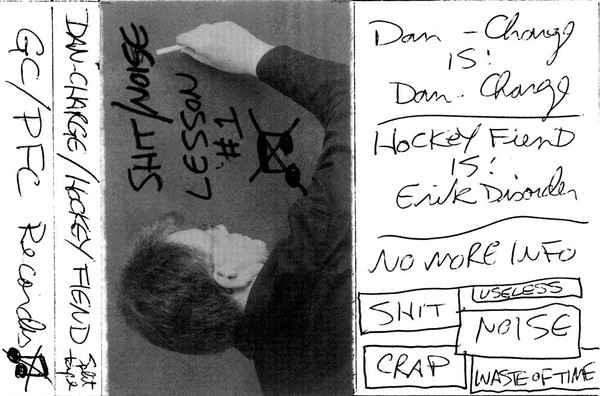 GC/PFC Records
DAN-CHARGE/HOCKEY FIEND Split tape
SHIT/NOISE
LESSON
#1
Dan-Charge
IS:
Dan-Charge
HOCKEY FIEND
IS:
Erik Disorder
NO MORE INFO
SHIT
USELESS
NOISE
CRAP
WASTE OF TIME